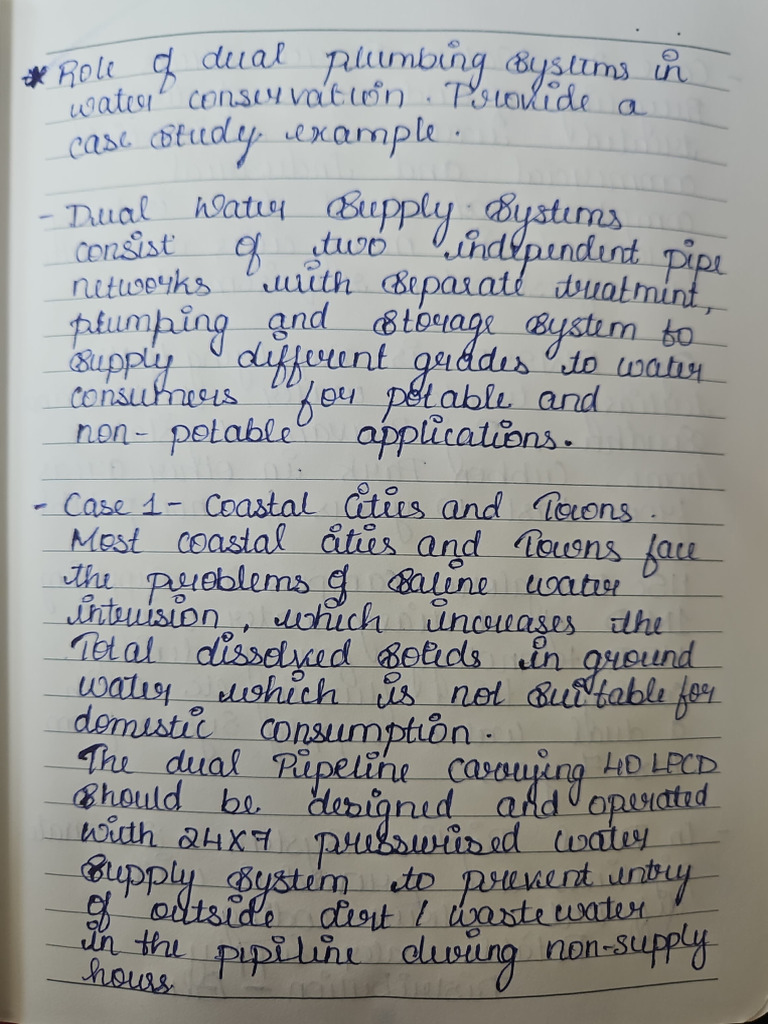 * Role of dual plumbing systems in
water conservation. Provide a
case study example.
- Dual Water Supply Systems
consist of two independent pipe
networks with separate treatment,
plumping and storage system to
supply different grades to water
consumers for potable and
non-potable applications.
- Case 1 - Coastal Cities and Towns.
Most coastal cities and Towns face
the problems of saline water
intrusion, which increases the
Total dissolved solids in ground
water which is not suitable for
domestic consumption.
The dual Pipeline carrying 40 LPCD
should be designed and operated
with 24x7 pressurised water
supply system to prevent entry
of outside dirt / waste water
in the pipiline during non-supply
hours.